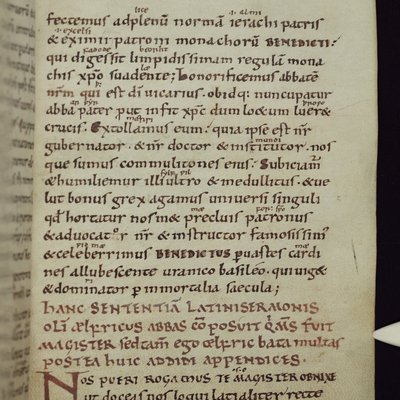 fectemus adplenū normā ierachi patris
& eximii patroni monachorū BENEDICTI.
qui digessit limpidissimam regulā mona
chis xp̄o suadente; honorificemus abbatē
nr̄m qui est dī uicarius. obidq; nuncupatur
abba pater
crucis. Extollamus eum. quia ipse est nr̄
gubernator. & nr̄ doctor & institutor. nos
que sumus commilitones eius. Subiciam̄
& humiliemur illi ultro & medullitus. & ue
lut bonus grex agamus uniuersi singuli
qd hortatur nos mæ precluis patronus
& aduocat' nr̄ & instructor famosissim'
& celeberrimus BENEDICTUS
nes allubescente uranico basileo. qui uig&
& dominator p inmortalia saecula;
HANC SENTENTIĀ LATINI SERMONIS
OLĪ ÆLFRICUS ABBAS CŌPOSUIT QUI MS FUIT
MAGISTER SED TAM̄ EGO ÆLFRIC BATA MULTAS
POSTEA HUIC ADDIDI APPENDICES.
NOS PUERI ROGAMUS TE MAGISTER OBNIXE
ut doceas nos loqui latialiter recte